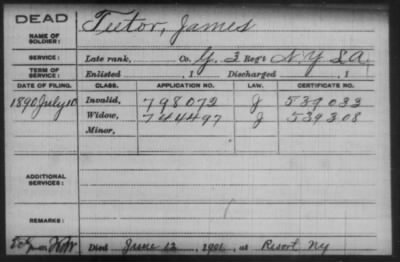 DEAD
NAME OF SOLDIER: Teetor, James
SERVICE: Late rank, Co. G. 3 Reg't N.Y. L A.
TERM OF SERVICE: Enlisted , 1 Discharged , 1
DATE OF FILING. CLASS. APPLICATION NO. LAW. CERTIFICATE NO.
1890 July 10 Invalid, 798072 J 539033
Widow, 744497 J 539308
Minor,
ADDITIONAL SERVICES:
REMARKS:
Died June 12, 1901, at Resort, NY